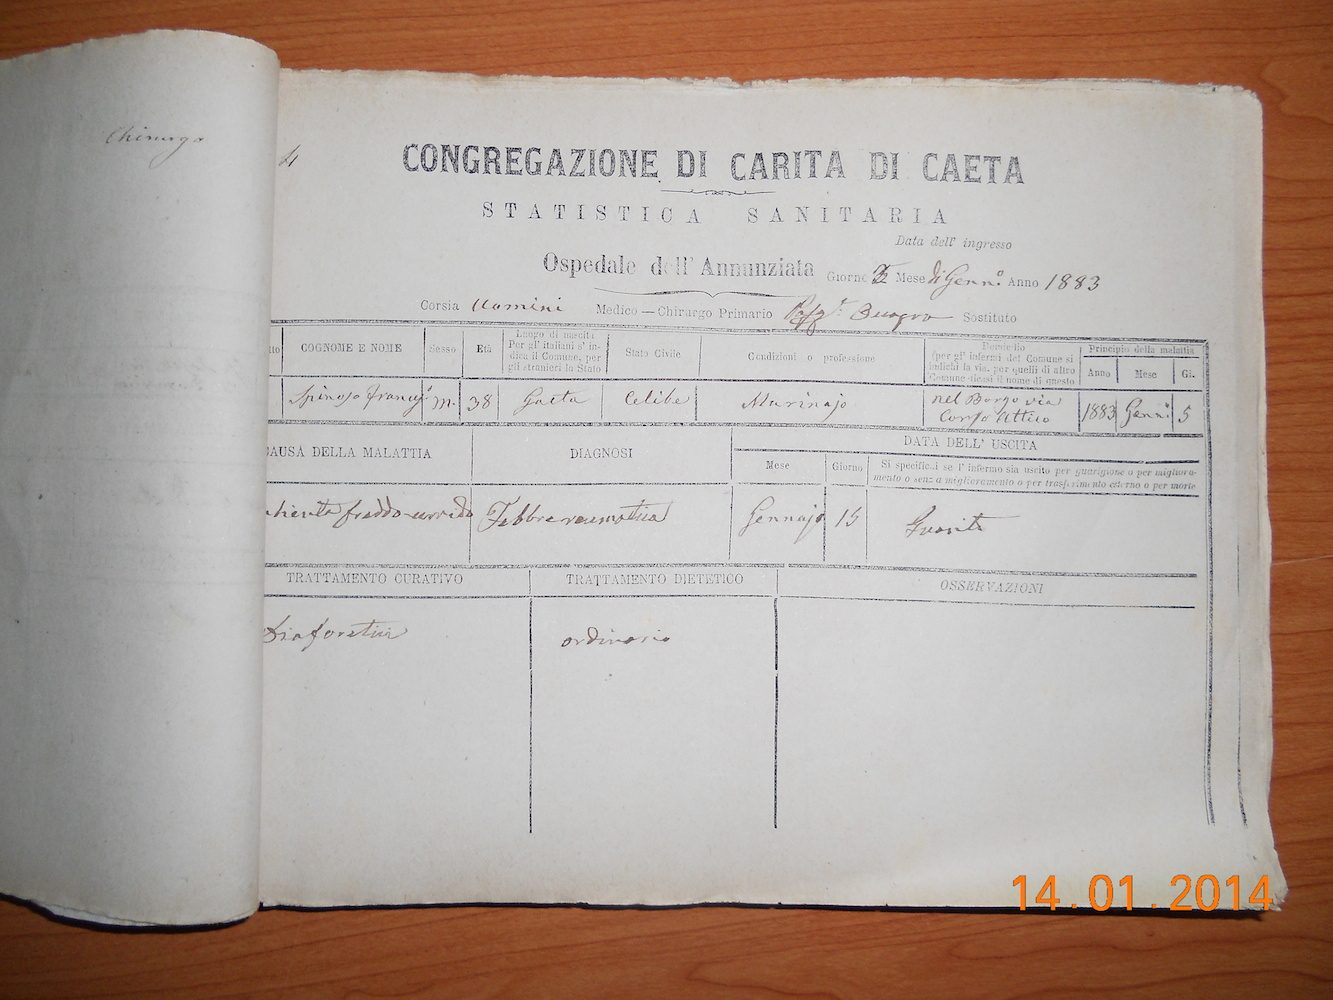 Chirurgo
4
CONGREGAZIONE DI CARITA DI CAETA
STATISTICA SANITARIA
Data dell' ingresso
Ospedale dell' Annunziata Giorno Mese di Genn.o Anno 1883
Corsia Uomini Medico — Chirurgo Primario Sostituto
COGNOME E NOME
Sesso
Età
Luogo di nascita
Per gl' italiani s' in-
dica il Comune, per
gli stranieri lo Stato
Stato Civile
Condizioni o professione
Domicilio
(per gl' infermi del Comune si
indichi la via, per quelli di altro
Comune indicasi il nome di questo
Principio della malattia
Anno Mese Gi.
Spinosa Franc.o
M.
38
Gaeta
Celibe
Marinajo
nel Borgo via
Corso Attico
1883 Genn.o 5
CAUSA DELLA MALATTIA
DIAGNOSI
DATA DELL' USCITA
Mese Giorno
Si specifichi se l' infermo sia uscito per guarigione o per migliora-
mento o senza miglioramento o per trasferimento esterno o per morte
freddo-umido
Febbre reumatica
Gennajo 15
Guarito
TRATTAMENTO CURATIVO
TRATTAMENTO DIETETICO
OSSERVAZIONI
Diaforetici
ordinario
14.01.2014